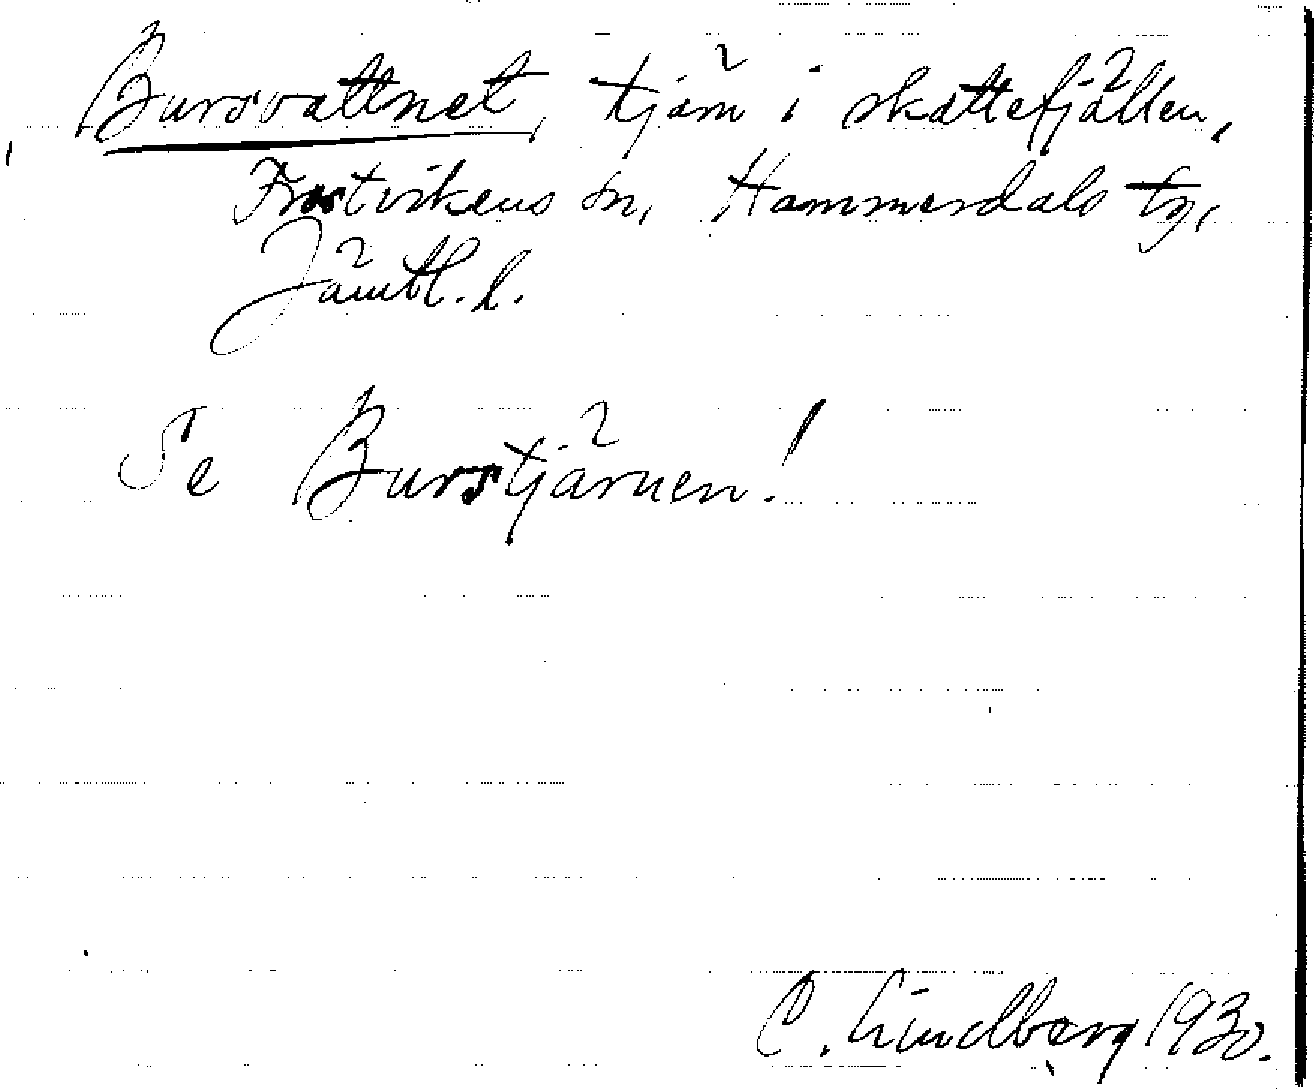 Bursvattnet, tjärn i skattefjällen,
Frostvikens sn, Hammerdals tg,
Jämtl. l.
Se Burstjärnen!
C. Lindberg 1930.